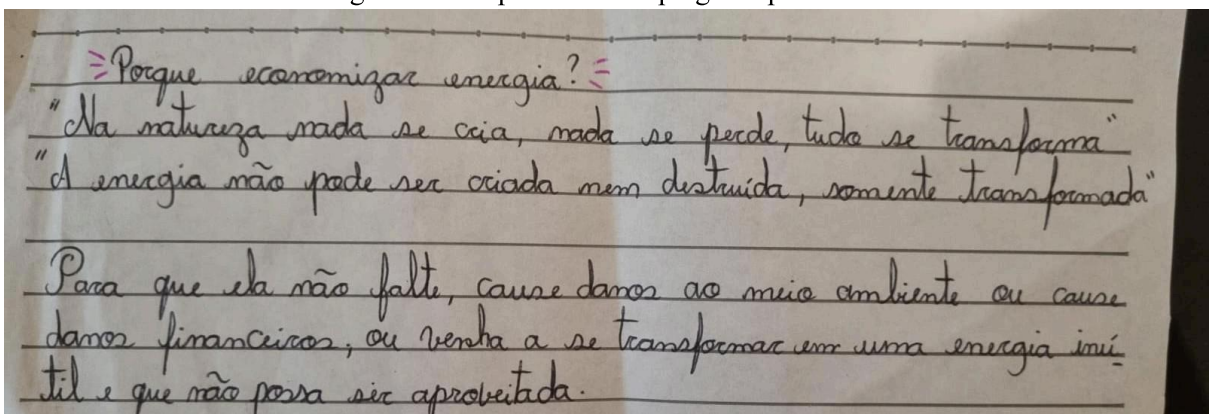 Porque economizar energia?
"Na natureza nada se cria, nada se perde, tudo se transforma"
"A energia não pode ser criada nem destruida, somente transformada"
Para que ela não falte, cause danos ao meio ambiente ou cause
danos financeiros, ou venha a se transformar em uma energia inú-
til e que não possa ser aproveitada.